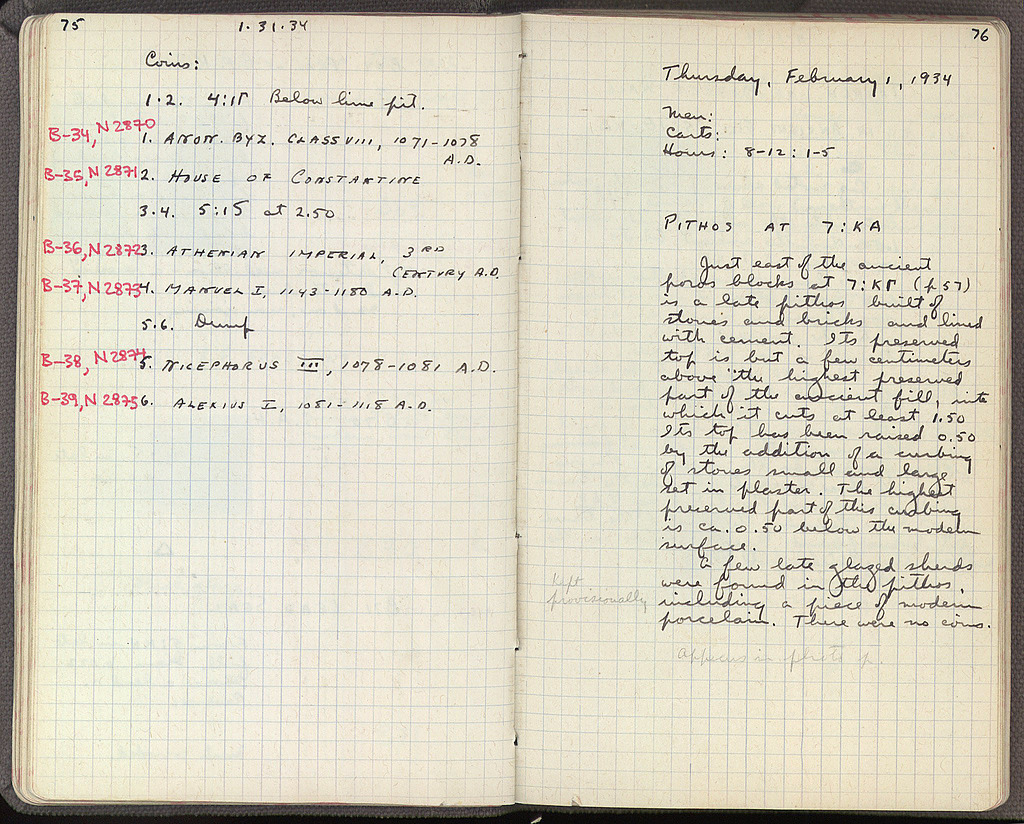 75
1·31·34
Coins:
1·2. 4:IΓ Below lime pit.
B-34, N2870 1. ANON. BYZ. CLASS VIII, 1071-1078
A.D.
B-35, N2871 2. HOUSE OF CONSTANTINE
3.4. 5:15 at 2.50
B-36, N2872 3. ATHENIAN IMPERIAL, 3RD
CENTURY A.D.
B-37, N2873 4. MANUEL I, 1143-1180 A.D.
5.6. Dump
B-38, N2874 5. NICEPHORUS III, 1078-1081 A.D.
B-39, N2875 6. ALEXIUS I, 1081-1118 A.D.
76
Thursday, February 1, 1934
Men:
Carts:
Hours: 8-12: 1-5
PITHOS AT 7:KA
Just east of the ancient
poros blocks at 7:KΓ (p57)
is a late pithos built of
stones and bricks and lined
with cement. Its preserved
top is but a few centimeters
above the highest preserved
part of the ancient fill, into
which it cuts at least 1.50
Its top has been raised 0.50
by the addition of a curbing
of stones small and large
set in plaster. The highest
preserved part of this curbing
is ca. 0.50 below the modern
surface.
A few late glazed sherds
were found in the pithos,
including a piece of modern
porcelain. There were no coins.
Kept
provisionally
Appears in photo p.